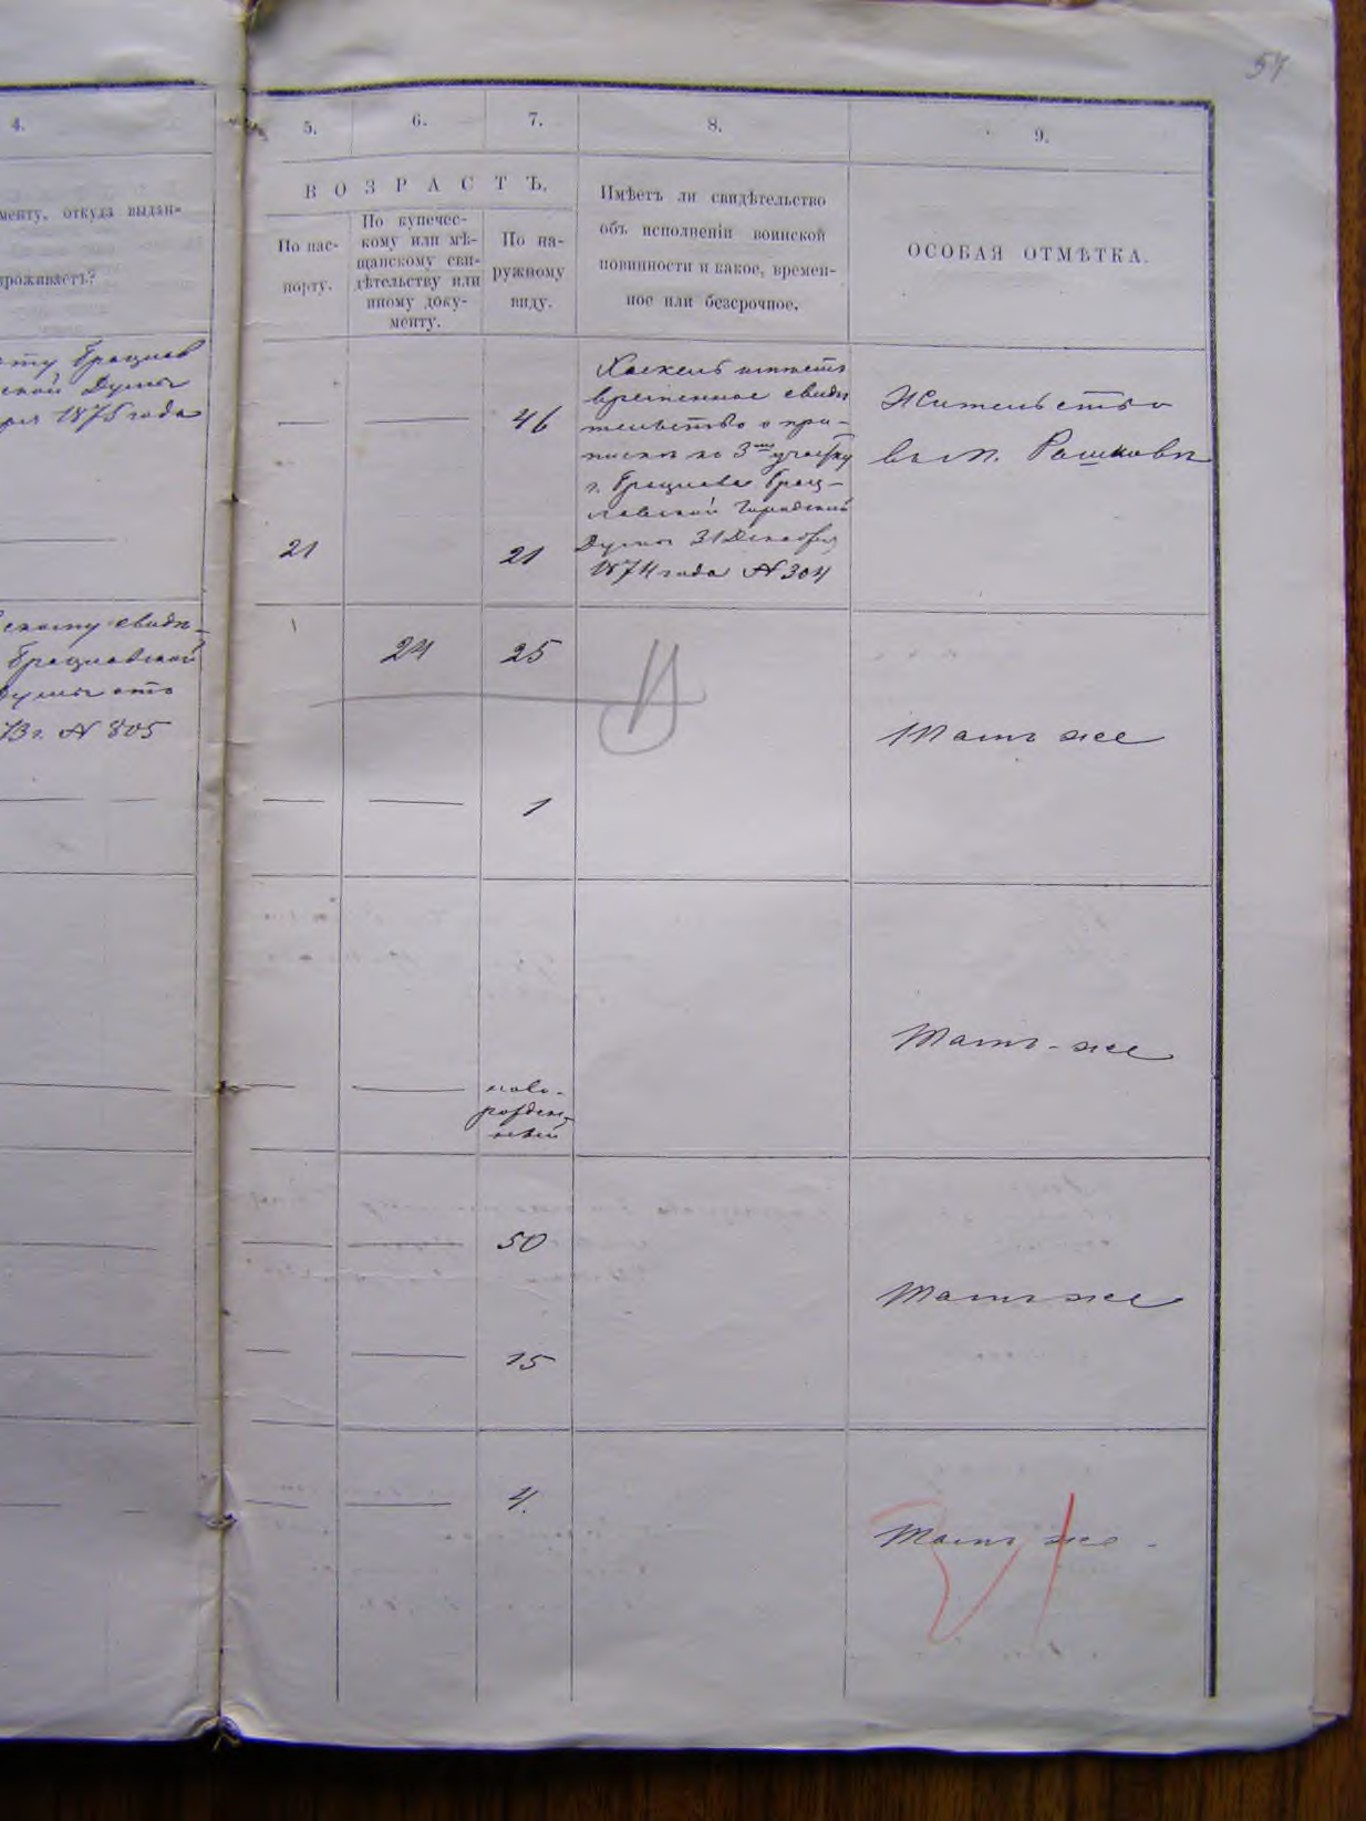 54
4.
5.
6.
7.
8.
9.
менту, откуда выдан-
проживаетъ?
ВОЗРАСТЪ.
По пас-
порту.
По купечес-
кому или мѣ-
щанскому сви-
дѣтельству или
иному доку-
менту.
По на-
ружному
виду.
Имѣетъ ли свидѣтельство
объ исполненіи воинской
повинности и какое, времен-
ное или безсрочное.
ОСОБАЯ ОТМѢТКА.
Брацлав
ской Думы
1875 года
46
21
21
Хаскель имѣетъ
временное свидѣ
тельство о при-
писки къ 3му участку
г. Брацлава Брац-
лавской Городской
Думы 31 Декабря
1874 года № 304
Жительство
въ м. Рашковѣ
скому свидѣ-
Брацлавской
Думы отъ
73 г. № 805
24
25
Тамъ же
1
ново-
рожден-
ный
Тамъ-же
50
Тамъ же
15
4.
Тамъ же